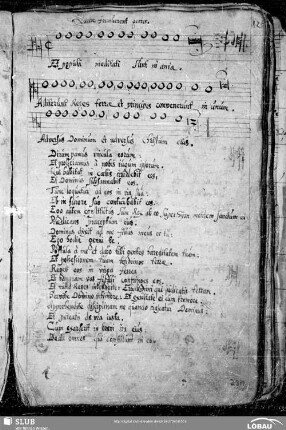 Quare fremuerunt gentes.
Et populi meditati sunt inania.
Astiterunt Reges terræ et principes convenerunt in unum.
Adversus Dominum et adversus Christum eius.
Dirumpamus vincula eorum.
Et proiiciamus à nobis iugum ipsorum.
Qui habitat in cælis irridebit eos.
Et Dominus subsannabit eos.
Tunc loquetur ad eos in ira sua.
Et in furore suo conturbabit eos.
Ego autem constitutus sum Rex ab eo super Sion montem sanctum
Prædicans præceptum eius.
Dominus dixit ad me filius meus es tu
Ego hodie genui te
Postula à me et dabo tibi gentes hæreditatem tuam
Et possessionem tuam terminos terræ.
Reges eos in virga ferrea
Et nunc Reges intelligite: Erudimini qui iudicatis terram.
Servite Domino in timore: Et exultate ei cum tremore.
Apprehendite disciplinam ne quando irascatur Dominus:
Et pereatis de via iusta.
Cum exarserit in brevi ira eius
Beati omnes qui confidunt in eo.
SLUB
Wir führen Wissen.
LOBAU